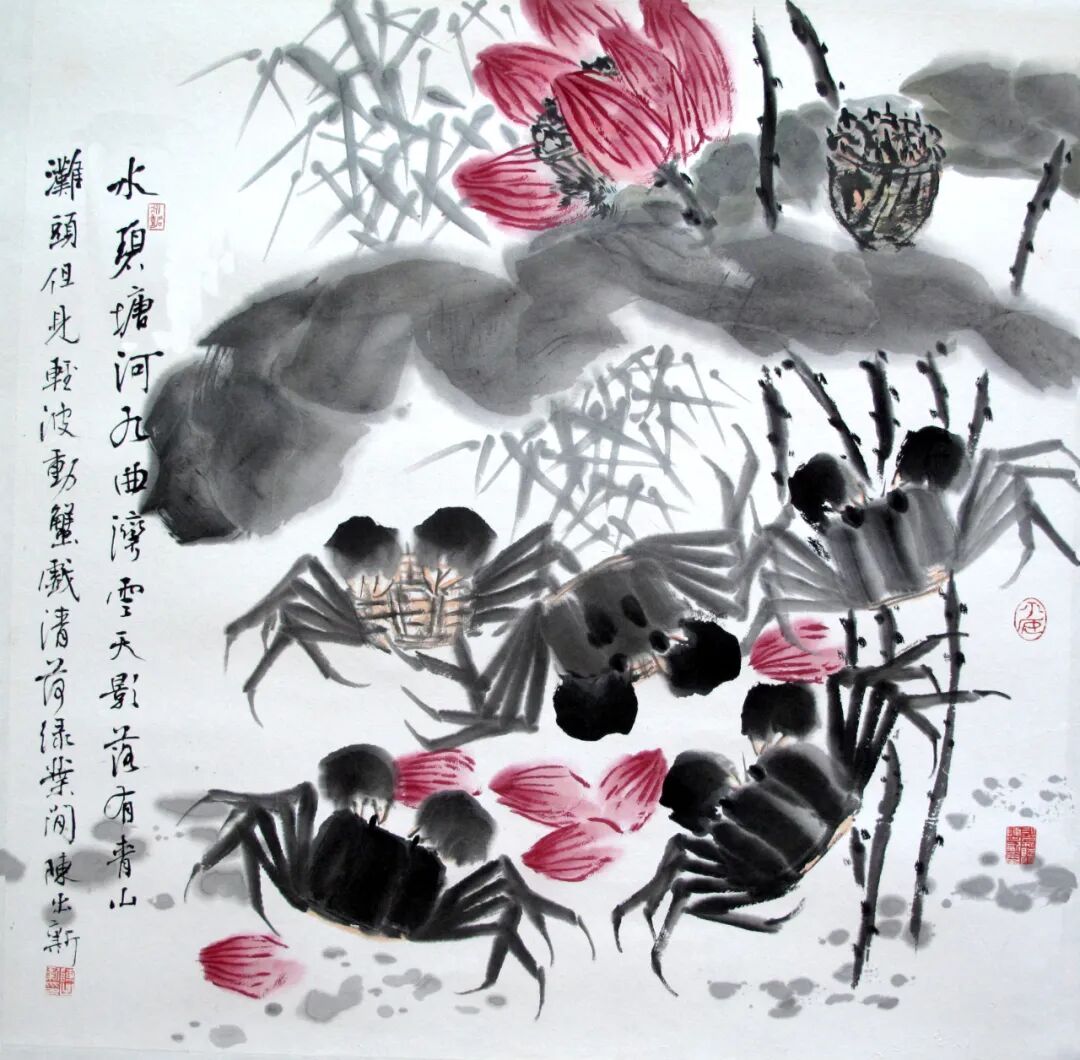 水碧塘河九曲灣雲天影落有青山
灘頭但見輕波動蟹戲清荷緑葉間陳出新